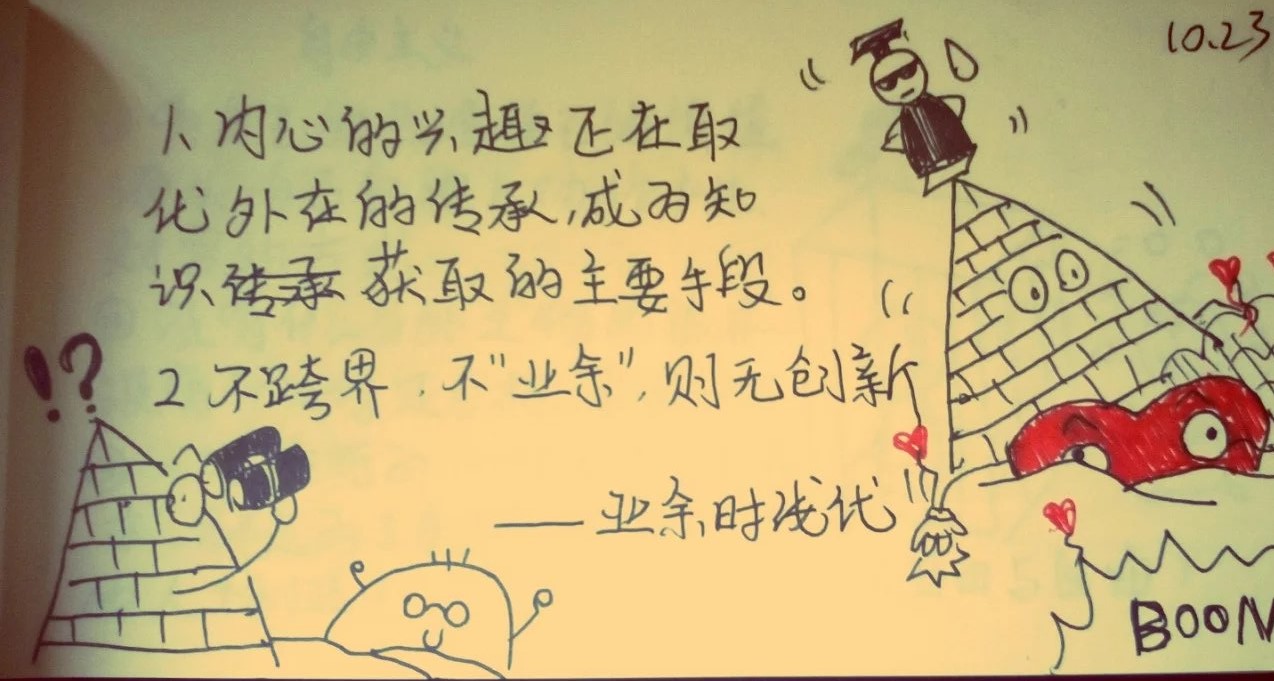 10.23
1、内心的兴趣正在取
代外在的传承,成为知
识传承获取的主要手段。
!?
2 不跨界,不"业余",则无创新
——业余时代
BOOM